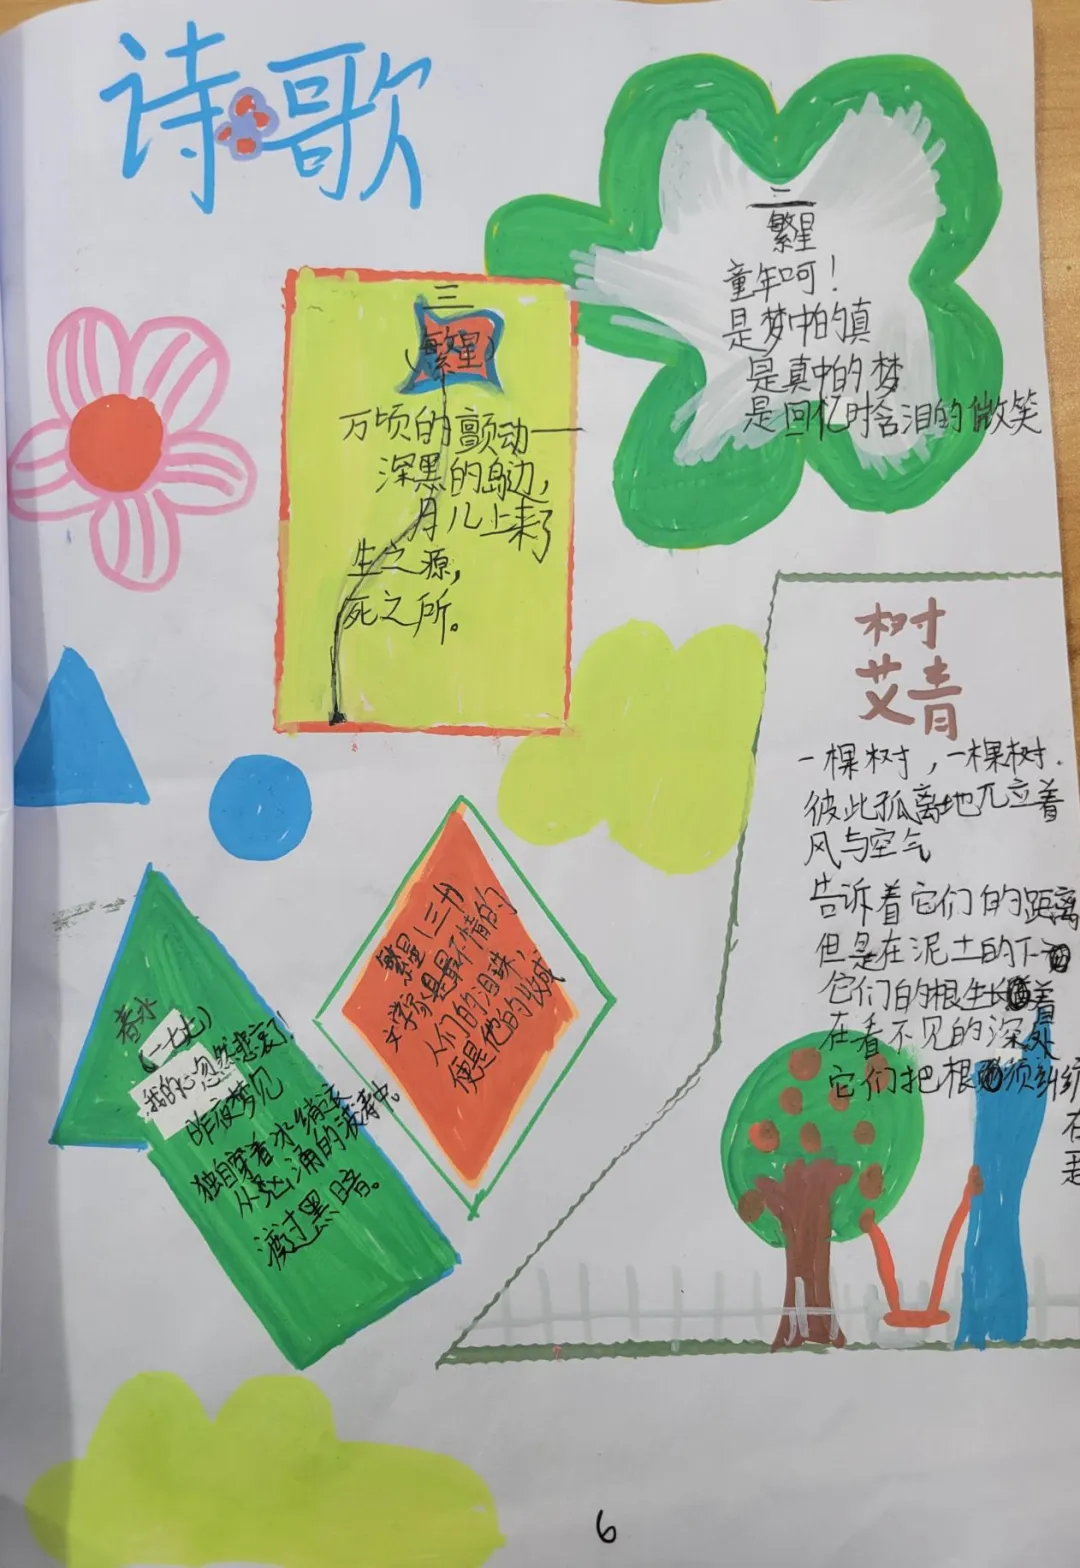 诗歌
二
繁星
童年呵!
是梦中的真
是真中的梦
是回忆时含泪的微笑
三
繁星
万顷的颤动——
深黑的岛边,
月儿上来了
生之源,
死之所。
树
艾青
一棵树,一棵树.
彼此孤离地兀立着
风与空气
告诉着它们的距离
但是在泥土的下
它们的根生长着
在看不见的深处
它们把根须纠纡
在
是
繁星(三书
文学家是最不情的
人们的泪珠,
便是他的收成
春水
(一七七)
我的心忽然悲哀了!
昨夜梦见
独自穿着冰绡之
从汹涌的波涛中。
渡过黑暗。
6